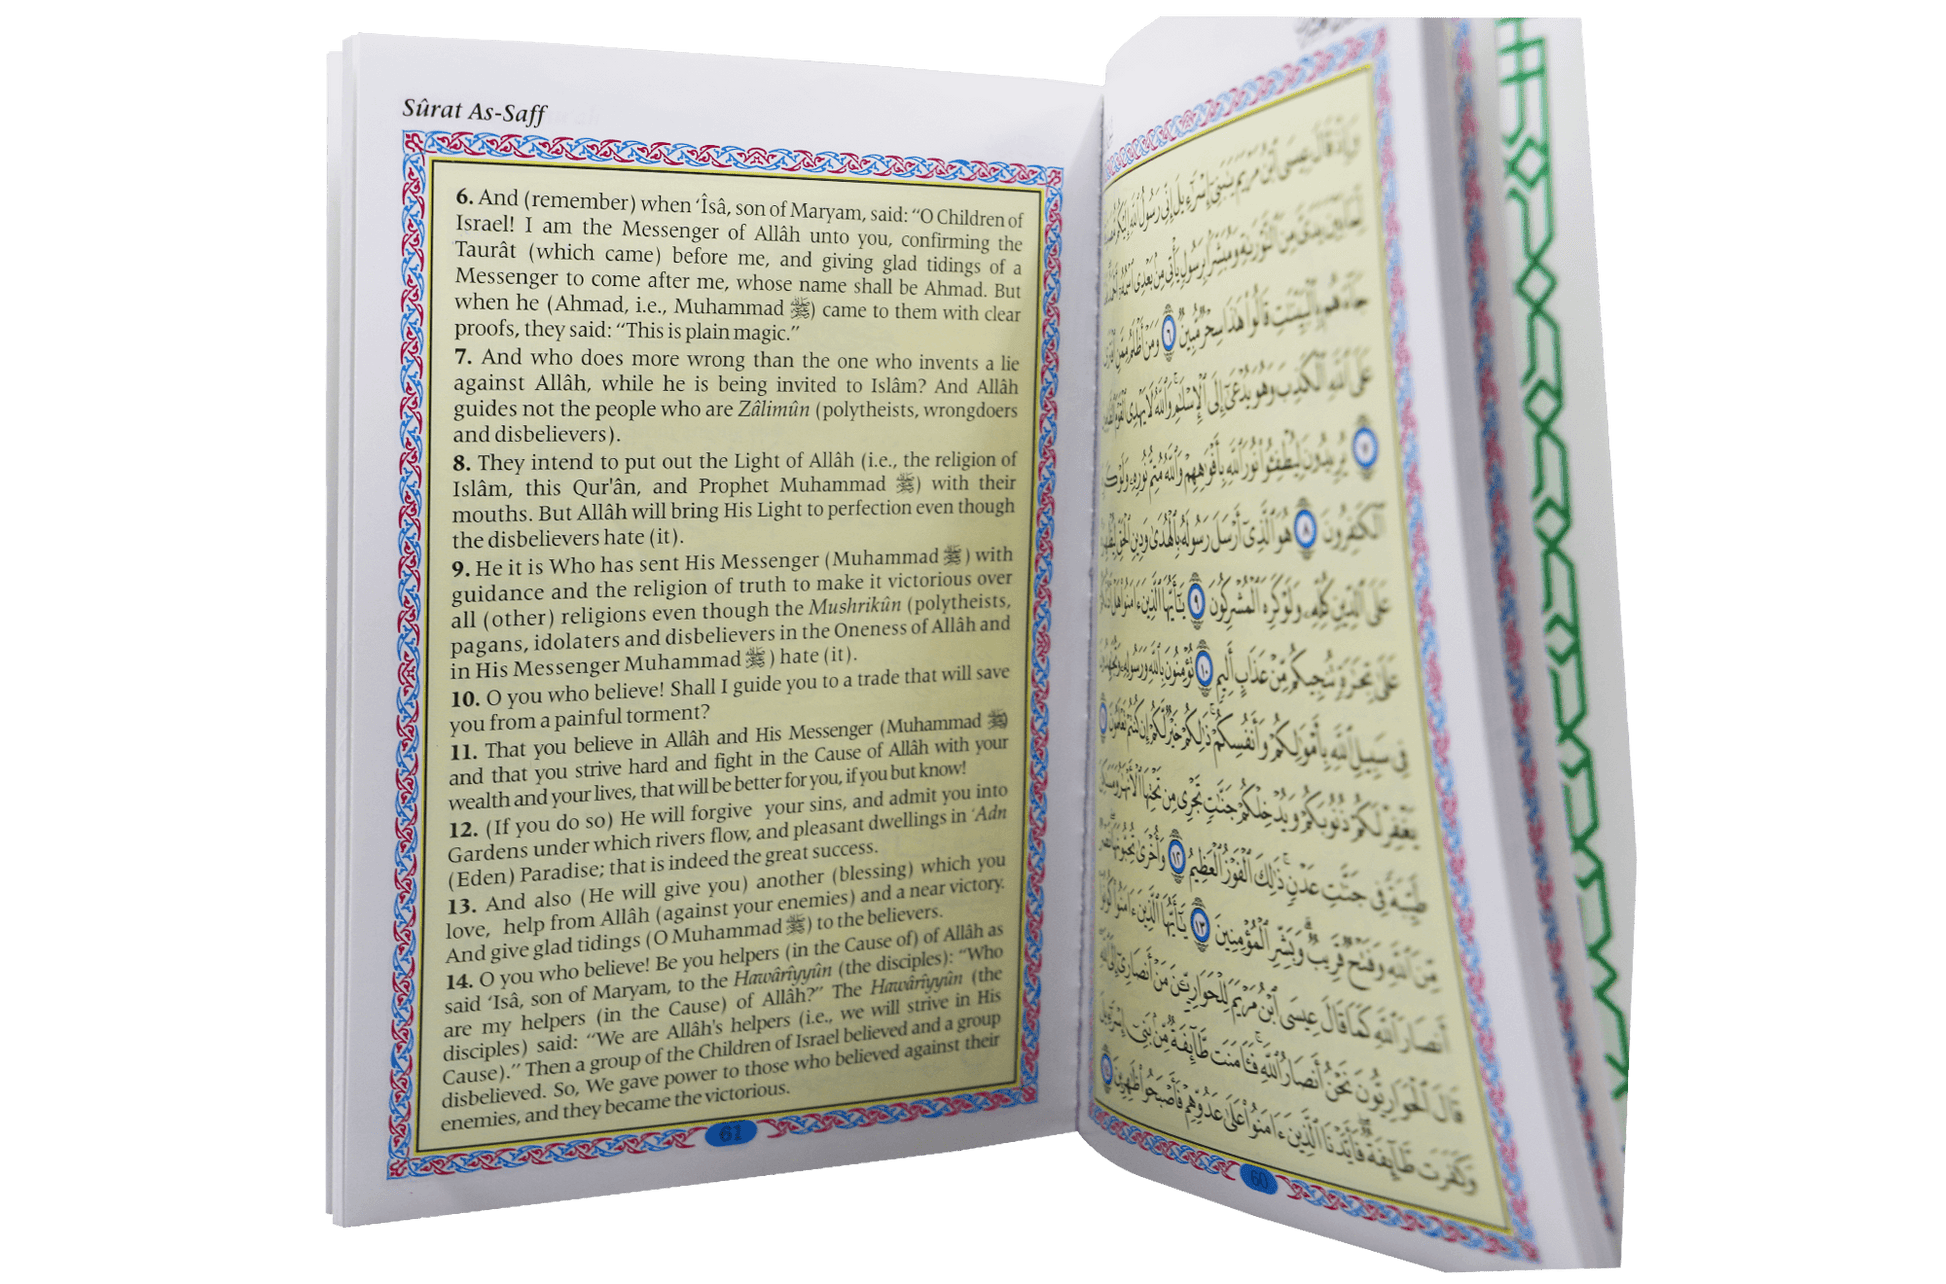 Sûrat As-Saff
6. And (remember) when ‘Îsâ, son of Maryam, said: “O Children of
Israel! I am the Messenger of Allâh unto you, confirming the
Taurât (which came) before me, and giving glad tidings of a
Messenger to come after me, whose name shall be Ahmad. But
when he (Ahmad, i.e., Muhammad ﷺ) came to them with clear
proofs, they said: “This is plain magic.”
7. And who does more wrong than the one who invents a lie
against Allâh, while he is being invited to Islâm? And Allâh
guides not the people who are Zâlimûn (polytheists, wrongdoers
and disbelievers).
8. They intend to put out the Light of Allâh (i.e., the religion of
Islâm, this Qur'ân, and Prophet Muhammad ﷺ) with their
mouths. But Allâh will bring His Light to perfection even though
the disbelievers hate (it).
9. He it is Who has sent His Messenger (Muhammad ﷺ) with
guidance and the religion of truth to make it victorious over
all (other) religions even though the Mushrikûn (polytheists,
pagans, idolaters and disbelievers in the Oneness of Allâh and
in His Messenger Muhammad ﷺ) hate (it).
10. O you who believe! Shall I guide you to a trade that will save
you from a painful torment?
11. That you believe in Allâh and His Messenger (Muhammad ﷺ
and that you strive hard and fight in the Cause of Allâh with your
wealth and your lives, that will be better for you, if you but know!
12. (If you do so) He will forgive your sins, and admit you into
Gardens under which rivers flow, and pleasant dwellings in ‘Adn
(Eden) Paradise; that is indeed the great success.
13. And also (He will give you) another (blessing) which you
love, help from Allâh (against your enemies) and a near victory.
And give glad tidings (O Muhammad ﷺ) to the believers.
14. O you who believe! Be you helpers (in the Cause of) of Allâh as
said ‘Isâ, son of Maryam, to the Hawârîyyûn (the disciples): “Who
are my helpers (in the Cause) of Allâh?” The Hawârîyyûn (the
disciples) said: “We are Allâh's helpers (i.e., we will strive in His
Cause).” Then a group of the Children of Israel believed and a group
disbelieved. So, We gave power to those who believed against their
enemies, and they became the victorious.
61
وَإِذْ قَالَ عِيسَى ٱبْنُ مَرْيَمَ يَٰبَنِىٓ إِسْرَٰٓءِيلَ إِنِّى رَسُولُ ٱللَّهِ إِلَيْكُم
بَيْنَ يَدَىَّ مِنَ ٱلتَّوْرَىٰةِ وَمُبَشِّرًۢا بِرَسُولٍ يَأْتِى مِنۢ بَعْدِى ٱسْمُهُۥٓ
جَآءَهُم بِٱلْبَيِّنَٰتِ قَالُوا۟ هَٰذَا سِحْرٌ مُّبِينٌ ٦ وَمَنْ أَظْلَمُ مِمَّنِ
عَلَى ٱللَّهِ ٱلْكَذِبَ وَهُوَ يُدْعَىٰٓ إِلَى ٱلْإِسْلَٰمِ وَٱللَّهُ لَا يَهْدِى ٱلْقَوْمَ
٧ يُرِيدُونَ لِيُطْفِـُٔوا۟ نُورَ ٱللَّهِ بِأَفْوَٰهِهِمْ وَٱللَّهُ مُتِمُّ نُورِهِۦ وَلَوْ
ٱلْكَٰفِرُونَ ٨ هُوَ ٱلَّذِىٓ أَرْسَلَ رَسُولَهُۥ بِٱلْهُدَىٰ وَدِينِ ٱلْحَقِّ
عَلَى ٱلدِّينِ كُلِّهِۦ وَلَوْ كَرِهَ ٱلْمُشْرِكُونَ ٩ يَٰٓأَيُّهَا ٱلَّذِينَ ءَامَنُوا۟ هَلْ
عَلَىٰ تِجَٰرَةٍ تُنجِيكُم مِّنْ عَذَابٍ أَلِيمٍ ١٠ تُؤْمِنُونَ بِٱللَّهِ وَرَسُولِهِۦ
فِى سَبِيلِ ٱللَّهِ بِأَمْوَٰلِكُمْ وَأَنفُسِكُمْ ذَٰلِكُمْ خَيْرٌ لَّكُمْ إِن كُنتُمْ تَعْلَمُونَ
يَغْفِرْ لَكُمْ ذُنُوبَكُمْ وَيُدْخِلْكُمْ جَنَّٰتٍ تَجْرِى مِن تَحْتِهَا ٱلْأَنْهَٰرُ
طَيِّبَةً فِى جَنَّٰتِ عَدْنٍ ذَٰلِكَ ٱلْفَوْزُ ٱلْعَظِيمُ ١٢ وَأُخْرَىٰ تُحِبُّونَهَا
مِّنَ ٱللَّهِ وَفَتْحٌ قَرِيبٌ وَبَشِّرِ ٱلْمُؤْمِنِينَ ١٣ يَٰٓأَيُّهَا ٱلَّذِينَ ءَامَنُوا۟ كُونُوٓا۟
أَنصَارَ ٱللَّهِ كَمَا قَالَ عِيسَى ٱبْنُ مَرْيَمَ لِلْحَوَارِيِّـۧنَ مَنْ أَنصَارِىٓ إِلَى ٱللَّهِ
قَالَ ٱلْحَوَارِيُّونَ نَحْنُ أَنصَارُ ٱللَّهِ فَـَٔامَنَت طَّآئِفَةٌ مِّنۢ بَنِىٓ إِسْرَٰٓءِيلَ
وَكَفَرَت طَّآئِفَةٌ فَأَيَّدْنَا ٱلَّذِينَ ءَامَنُوا۟ عَلَىٰ عَدُوِّهِمْ فَأَصْبَحُوا۟ ظَٰهِرِينَ
60